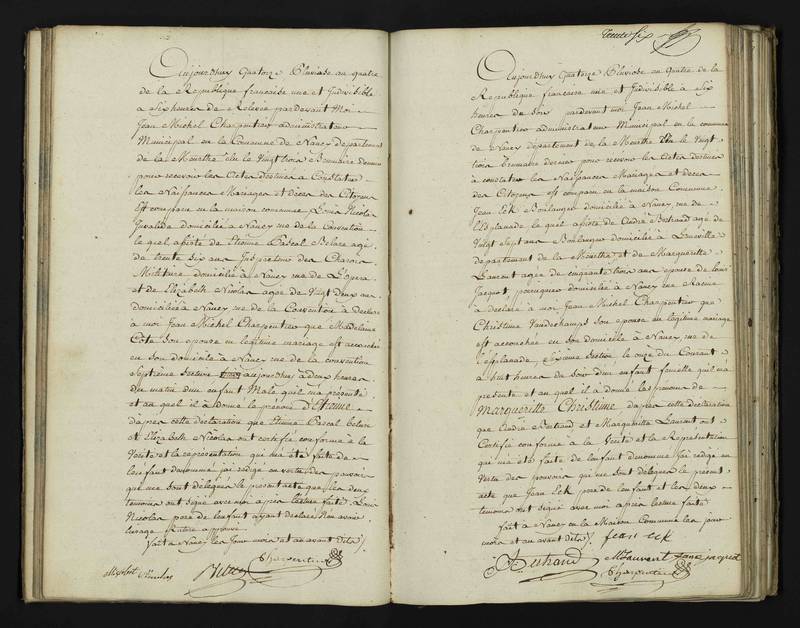 Aujourd'huy Quatorze Pluviose an quatre
de la Republique française une et Indivisible
à Six heures de Relevée pardevant Moi
Jean Michel Charpentier administrateur
Municipal en la Commune de Nancy departement
de la Meurthe élu le vingt trois Brumaire dernier
pour recevoir les Actes destinés à Constater
les Naissances Mariages et décès des Citoyens
Est comparu en la maison commune Louis Nicolas
Invalide domicilié à Nancy rue de la Convention
le quel assisté de Etienne Pascal Belare agé
de trente Six ans Inspecteur des Charois
Militaire domicilié à Nancy rue de L'Opera
et de Elizabeth Nicolas agée de Vingt Deux ans
domiciliée à Nancy rue de la Convention à déclaré
à moi Jean Michel Charpentier que Madelaine
Côte Son epouse en legitime mariage est accouchée
en son domicile à Nancy rue de la convention
Septième Section aujourd'huy à deux heures
du matin d'un enfant Male qu'il m'a présenté
et au quel il à donné le prénom d'Etienne
dapres cette declaration que Etienne Pascal Belare
et Elizabeth Nicolas ont certifié conforme a la
Verité et la représentation qui m'a été faite de
l'enfant denommé, j'ai rédigé en vertu des pouvoirs
qui me sont delegués le present acte que les deux
temoins ont signé avec moi après lecture faite Louis
Nicolas pere de l'enfant ayant declaré n'en avoir
l'usage
fait à Nancy les Jour mois et an avant dits
Charpentier
Nicolas
trente six
Aujourd'huy Quatorze Pluviose an Quatre de la
Republique françoise une et Indivisible à Six
heures de Soir pardevant moi Jean Michel
Charpentier administrateur Municipal en la commune
de Nancy departement de la Meurthe Elu le Vingt
trois Brumaire dernier pour recevoir les Actes destinés
à constater les Naissances Mariages et décès
des Citoyens est comparu en la maison Commune
Jean Lek Boulanger domicilié à Nancy rue de
l'Esplanade le quel assisté de André Bertrand agé de
Vingt Sept ans Boulanger domicilié à Luneville
departement de la Meurthe et de Marguerite
Laurent agée de cinquante trois ans epouse de Louis
Jacquot perruquier domiciliée à Nancy rue Racine
à declaré à moi Jean Michel Charpentier que
Christine Vandechamps Son epouse en légitime mariage
est accouchée en Son domicile à Nancy rue de
l'esplanade, Sixieme Section le onze du Courant
à huit heures du soir d'un enfant femelle qu'il m'a
presenté et au quel il à donné les prenoms de
Marguerite Christine, dapres cette declaration
que André Bertrand et Marguerite Laurent ont
Certifié conforme à la Verité et la Représentation
qui m'a été faite de l'enfant denommé j'ai redigé en
Vertu des pouvoirs qui me Sont delegués le présent
acte que Jean Lek pere de l'enfant et les deux
temoins ont signé avec moi apres lecture faite
fait à Nancy en la Maison Commune les jour
mois et an avant dits jean lek
Bertrand M Laurent fame jacquot
Charpentier